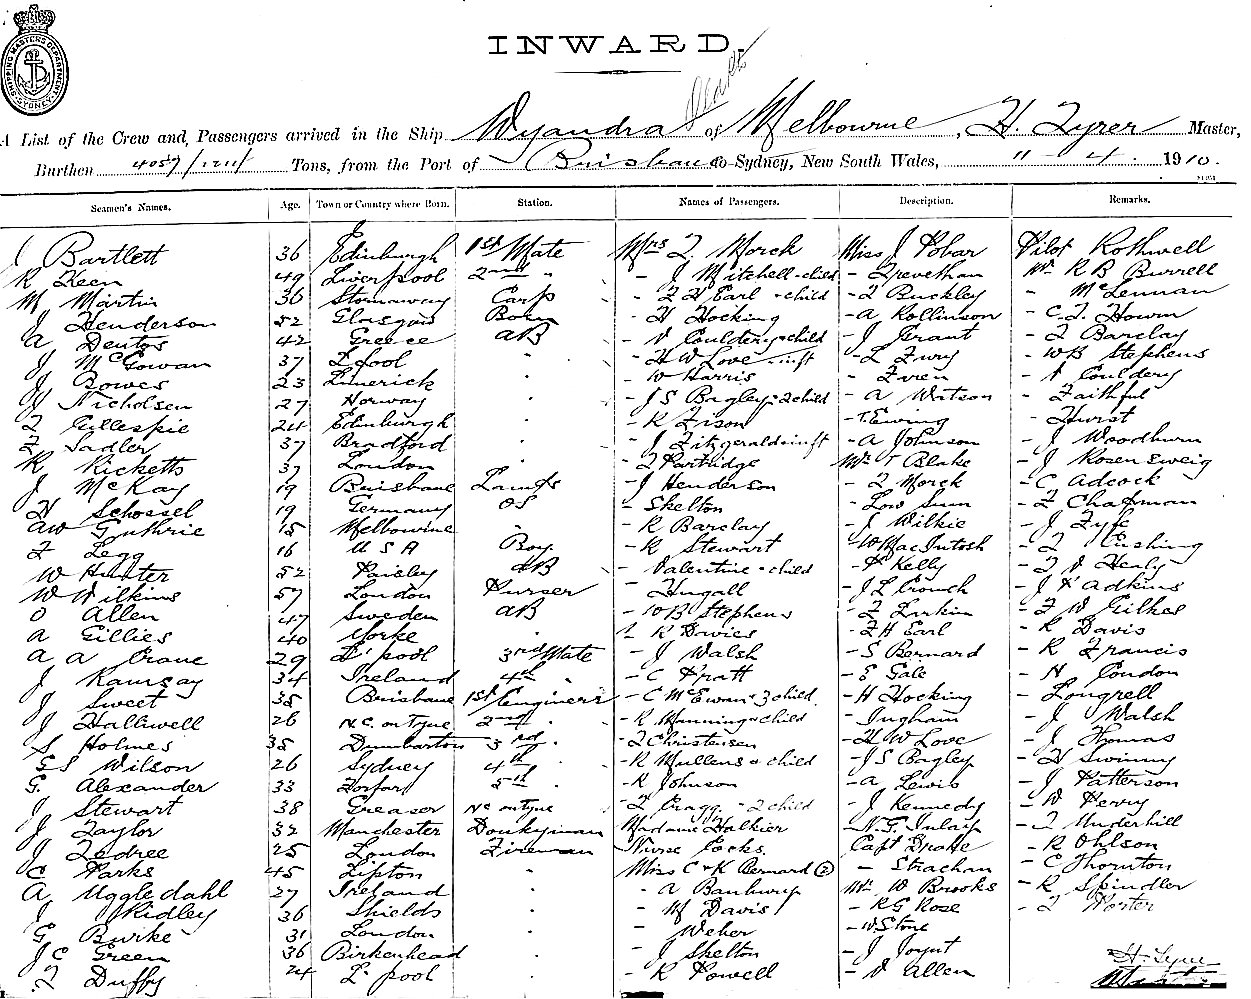 SHIPPING MASTERS DEPARTMENT SYDNEY
INWARD.
A List of the Crew and Passengers arrived in the Ship Wyandra of Melbourne, H. Tyrer Master,
Burthen 4057/1211 Tons, from the Port of Brisbane to Sydney, New South Wales, 11 - 4 . 1910.
Seamen's Names. Age. Town or Country where Born. Station. Names of Passengers. Description. Remarks.
J Bartlett 36 Edinburgh 1st Mate Mrs F. Morch Miss J Pobar Pilot Rothwell
R Keen 49 Liverpool 2nd " - J Mitchell & child - Trevethan Mr R B Burrell
M Martin 36 Stornaway Carp - F H Earl & child - F Buckley - McLennan
J Henderson 52 Glasgow Bosn - H Hocking - A Rollinson - C. F. Hown
A Dentos 42 Greece AB - V Couldery & child - J Grant - F Barclay
J McGowan 37 L'pool " - H W Love & inft - L Fury - W B Stephens
J Bowes 23 Limerick " - W Harris - Firen - V Couldery
J Nicholsen 27 Norway " - J S Bagley & 2 child - A Watson - Faithful
F Gillespie 24 Edinburgh " - K Fison - T. Ewing - Hurst
F Sadler 37 Bradford " - J Fitzgerald & inft - A Johnson - J Woodburn
R Ricketts 37 London " - F Partridge Mr T Blake - J Rosensweig
J McKay 19 Brisbane Lamps - J Henderson - F Morch - C Adcock
H Schossel 19 Germany OS - Skelton - Low Sun - F Chapman
AW Guthrie 15 Melbourne " - R Barclay - J Wilkie - J Fyfe
F Legg 16 U S A Boy - R Stewart - W MacIntosh - F Cushing
W Hunter 52 Paisley AB - Valentine & child - P Kelly - F V Healy
W Wilkins 57 London Purser - Hugall - J L Crouch - J H Adkins
O Allen 47 Sweden AB - W B Stephens - F Larkin - F W Gilkes
A Gillies 40 Yorke " - R Davies - F H Earl - R Davis
A A Crane 29 L'pool 3rd Mate - J Walsh - S Bernard - R Francis
J Ramsay 34 Ireland 4th " - C Pratt - E Gale - N Condon
J Sweet 35 Brisbane 1st Engineer - C McEwan & 3 child - H Hocking - Longrell
J Halliwell 26 N.C. on Tyne 2nd " - R Manning & child - Ingham - J Walsh
S Holmes 35 Dumbarton 3rd " - F Christensen - H W Love - J Thomas
G S Wilson 26 Sydney 4th " - R Mullens & child - J S Bagley - H Swinny
G. Alexander 33 Forfar 5th - R Johnson - A Lewis - J Patterson
J Stewart 38 Greaser Nc on Tyne - F Cragg & 2 child - J Kennedy - W Perry
J Taylor 32 Manchester Donkyman Madame Halkier - N. G. Inlay - F Underhill
J Fedree 25 London Fireman Nurse Cocks Capt Drake - R Ohlson
C Parks 45 Tipton " Miss C & K Bernard (2) - Strachan - C Thornton
A Uggledahl 27 Ireland " - A Banbury Mr W Brooks - R Spindler
J Ridley 36 Shields " - M Davis - R G Rose - F Porter
G Burke 31 London " - Weber - W Stone
J C Green 36 Birkenhead " - J Skelton - J Joynt
F Duffy 24 L'pool " - R Powell - V Allen
H. Tyrer
Master